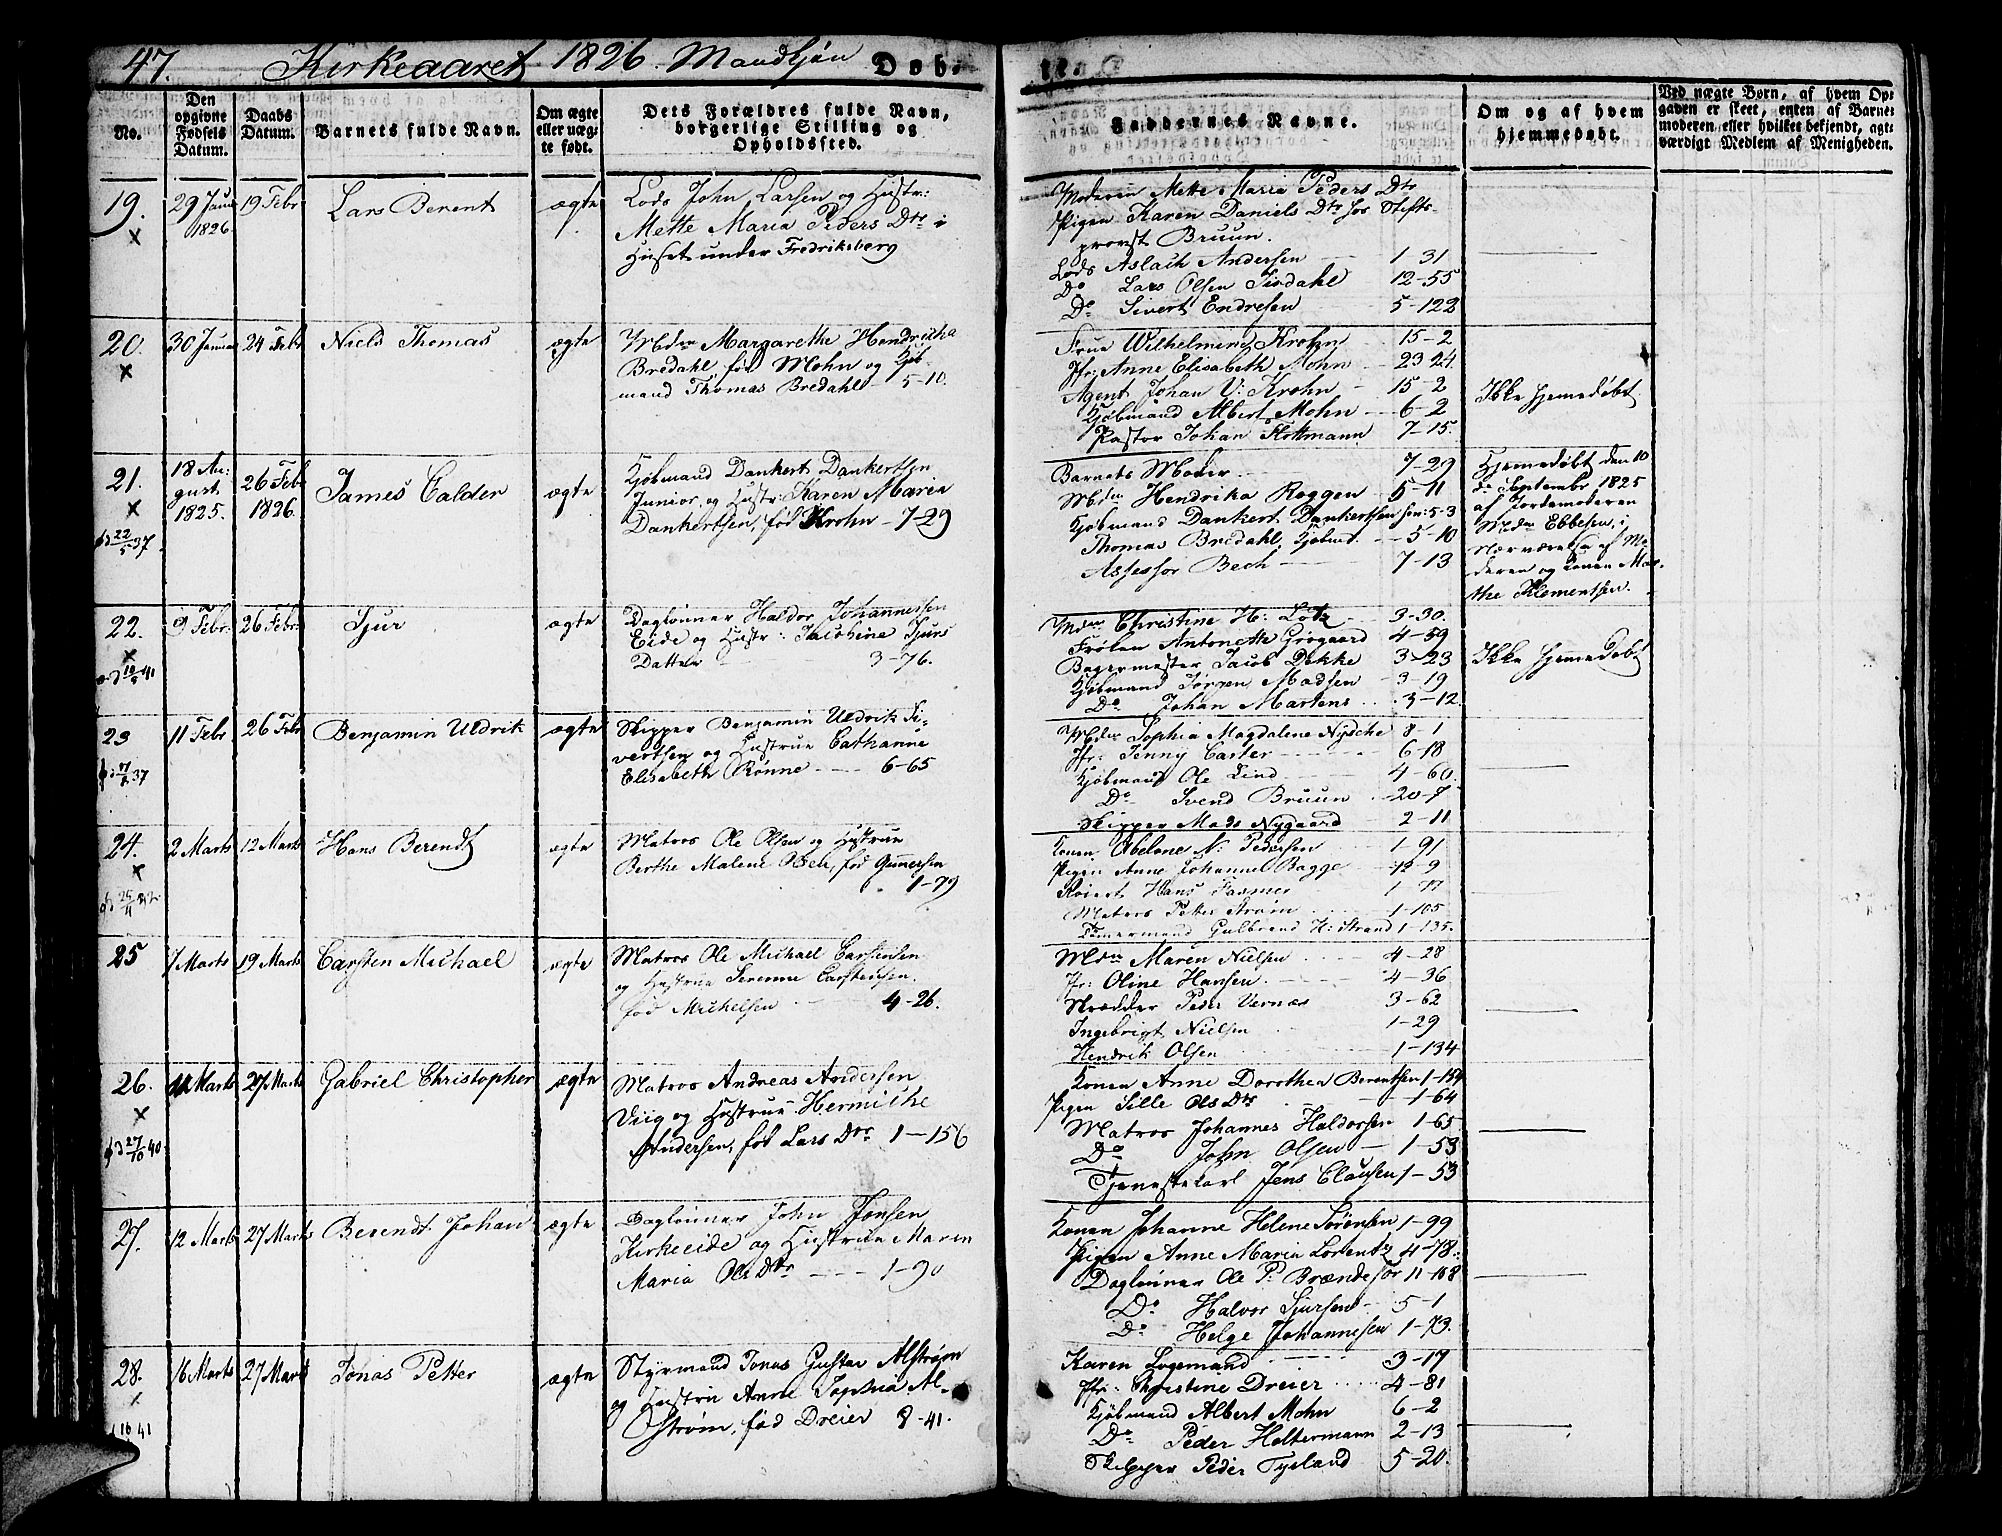 47. Kirkeaaret 1826. Mandkjøn Døb-
No.
Den opgivne Fødsels Datum.
Daabs Datum.
Barnets fulde Navn.
Om ægte eller uægte født.
Dets Forældres fulde Navn, borgerlige Stilling og Opholdssted.
Faddernes Navne.
Om og af hvem hjemmedøbt.
Ved uægte Børn, af hvem Op-
gaven er skeet, enten af Barne-
moderen eller hvilket bekjendt, agt-
værdigt Medlem af Menigheden.
19. 29 Janu 1826. 19 Febr Lars Berent ægte
Lods John Larsen og Hustr:
Mette Maria Peders Dtr i
Huset under Fredriksberg
Moderen Mette Maria Peders Dtr
Pigen Karen Daniels Dtr hos Stifts-
provst Bruun.
Lods Aslach Andersen 1 31
Do Lars Olsen 12-55
Do Sivert Endresen 5-122
20. 30 Janua 24 Febr Niels Thomas ægte
Mdm Margarethe Hendricha
Bredahl, fød Mohn og Kjøb
mand Thomas Bredahl 5-10.
Frue Wilhelmine Krohn 15-2
Jfr: Anne Elisabeth Mohn 23 24.
Agent Johan V: Krohn 15-2
Kjøbmand Albert Mohn 6-2
Pastor Johan Flottmann 7-15.
Ikke hjemedøbt.
21. 18 Au:
gust
1825. 26 Febr
1826. James Calder ægte
22/5 37
Kjøbmand Dankert Dankertsen
Junior og Hustr: Karen Maria
Dankertsen, fød Krohn - 7-29
Barnets Moder 7-29
Mdm Hendrika Roggen 5-11
Kjøbmand Dankert Dankertsen sen: 5-3
Thomas Bredahl, Kjøbmd. 5-10
Assessor Bech 7-13
Hjemedøbt den 10
de September 1825
af Jordemoderen
Mdm Ebbesen, i
Nærværelse af Mo-
deren og Konen Mar-
the Klementsen.
22. 9 Febr: 26 Febr: Sjur ægte
Daglønner Haldor Johannessen
Eide og Hustr: Jacobine Sjurs
Datter 3-76.
Mdm Christine H: Lotz 3-30.
Frøken Antonette Grøgaard 4-59
Bagermester Jacob Dekke 3-23
Kjøbmand Jørgen Madsen 3-19
Do Johan Martens 3-12.
Ikke hjemedøbt
23 11 Febr 26 Febr Benjamin Uldrik ægte
37
Skipper Benjamin Uldrik Si-
vertsen og Hustrue Cathanne
Elisabeth Rønne 6-65
Mdm Sophia Magdalene Nysche 8-1
Jfr: Jenny Carter 6-18
Kjøbmand Ole Lind 4-60.
Do Svend Bruun 20-7
Skipper Mads Nygaard 2-11
24. 2 Marts 12 Marts Hans Berendt ægte
Matros Ole Olsen og Hustrue
Berthe Malene Olsen, fød Gunnersen
1-79
Konen Abelone N: Pedersen 1-91
Pigen Anne Johanne Bagge 12-9
Hans Fasmer 1-77
Matros Petter Strøm 1-105
Tømermand Gulbrand H: Strand 1-135.
25 7 Marts 19 Marts Carsten Michael ægte
Matros Ole Michael Carstensen
og Hustrue Serenne Carstensen.
fød Michelsen 4-26.
Mdm Maren Nielsen 4-28
Jfr: Oline Hansen 4-36
Skrædder Peder Vernæs 3-62
Ingebrigt Nielsen 1-29
Hendrik Olsen 1-134
26. 11 Marts 27 Marts Gabriel Christopher ægte
27/10 40
Matros Andreas Andersen
Viig og Hustrue Hermiche
Andersen, fød Lars Dtr 1-156
Konen Anne Dorothea Berentsen 1-154
Pigen Sille Ols Dtr 1-64
Matros Johannes Haldorsen 1-65
Do John Olsen 1-53
Tjenestekarl Jens Clausen 1-53
27. 12 Marts 27 Marts Berendt Johan ægte
Daglønner John Jonsen
Kirkeeide og Hustrue Maren
Maria Ols Dtr 1-90
Konen Johanne Helene Sørensen 1-99
Pigen Anne Maria Lorentz 4-78.
Daglønner Ole P: Brændesør 11-168
Do Halvor Sjursen 5-1
Do Helge Johannesen 1-73.
28. 16 Marts 27 Marts Jonas Petter ægte
41
Styrmand Jonas Gustav Alstrøm
og Hustru Anne Sophia Al-
strøm, fød Dreier 8-41.
Karen Logemand 3-17
Jfr: Christine Dreier 4-81
Kjøbmand Albert Mohn 6-2
Do Peder Holtermann 2-13
Skipper Peder Tysland 5-20.